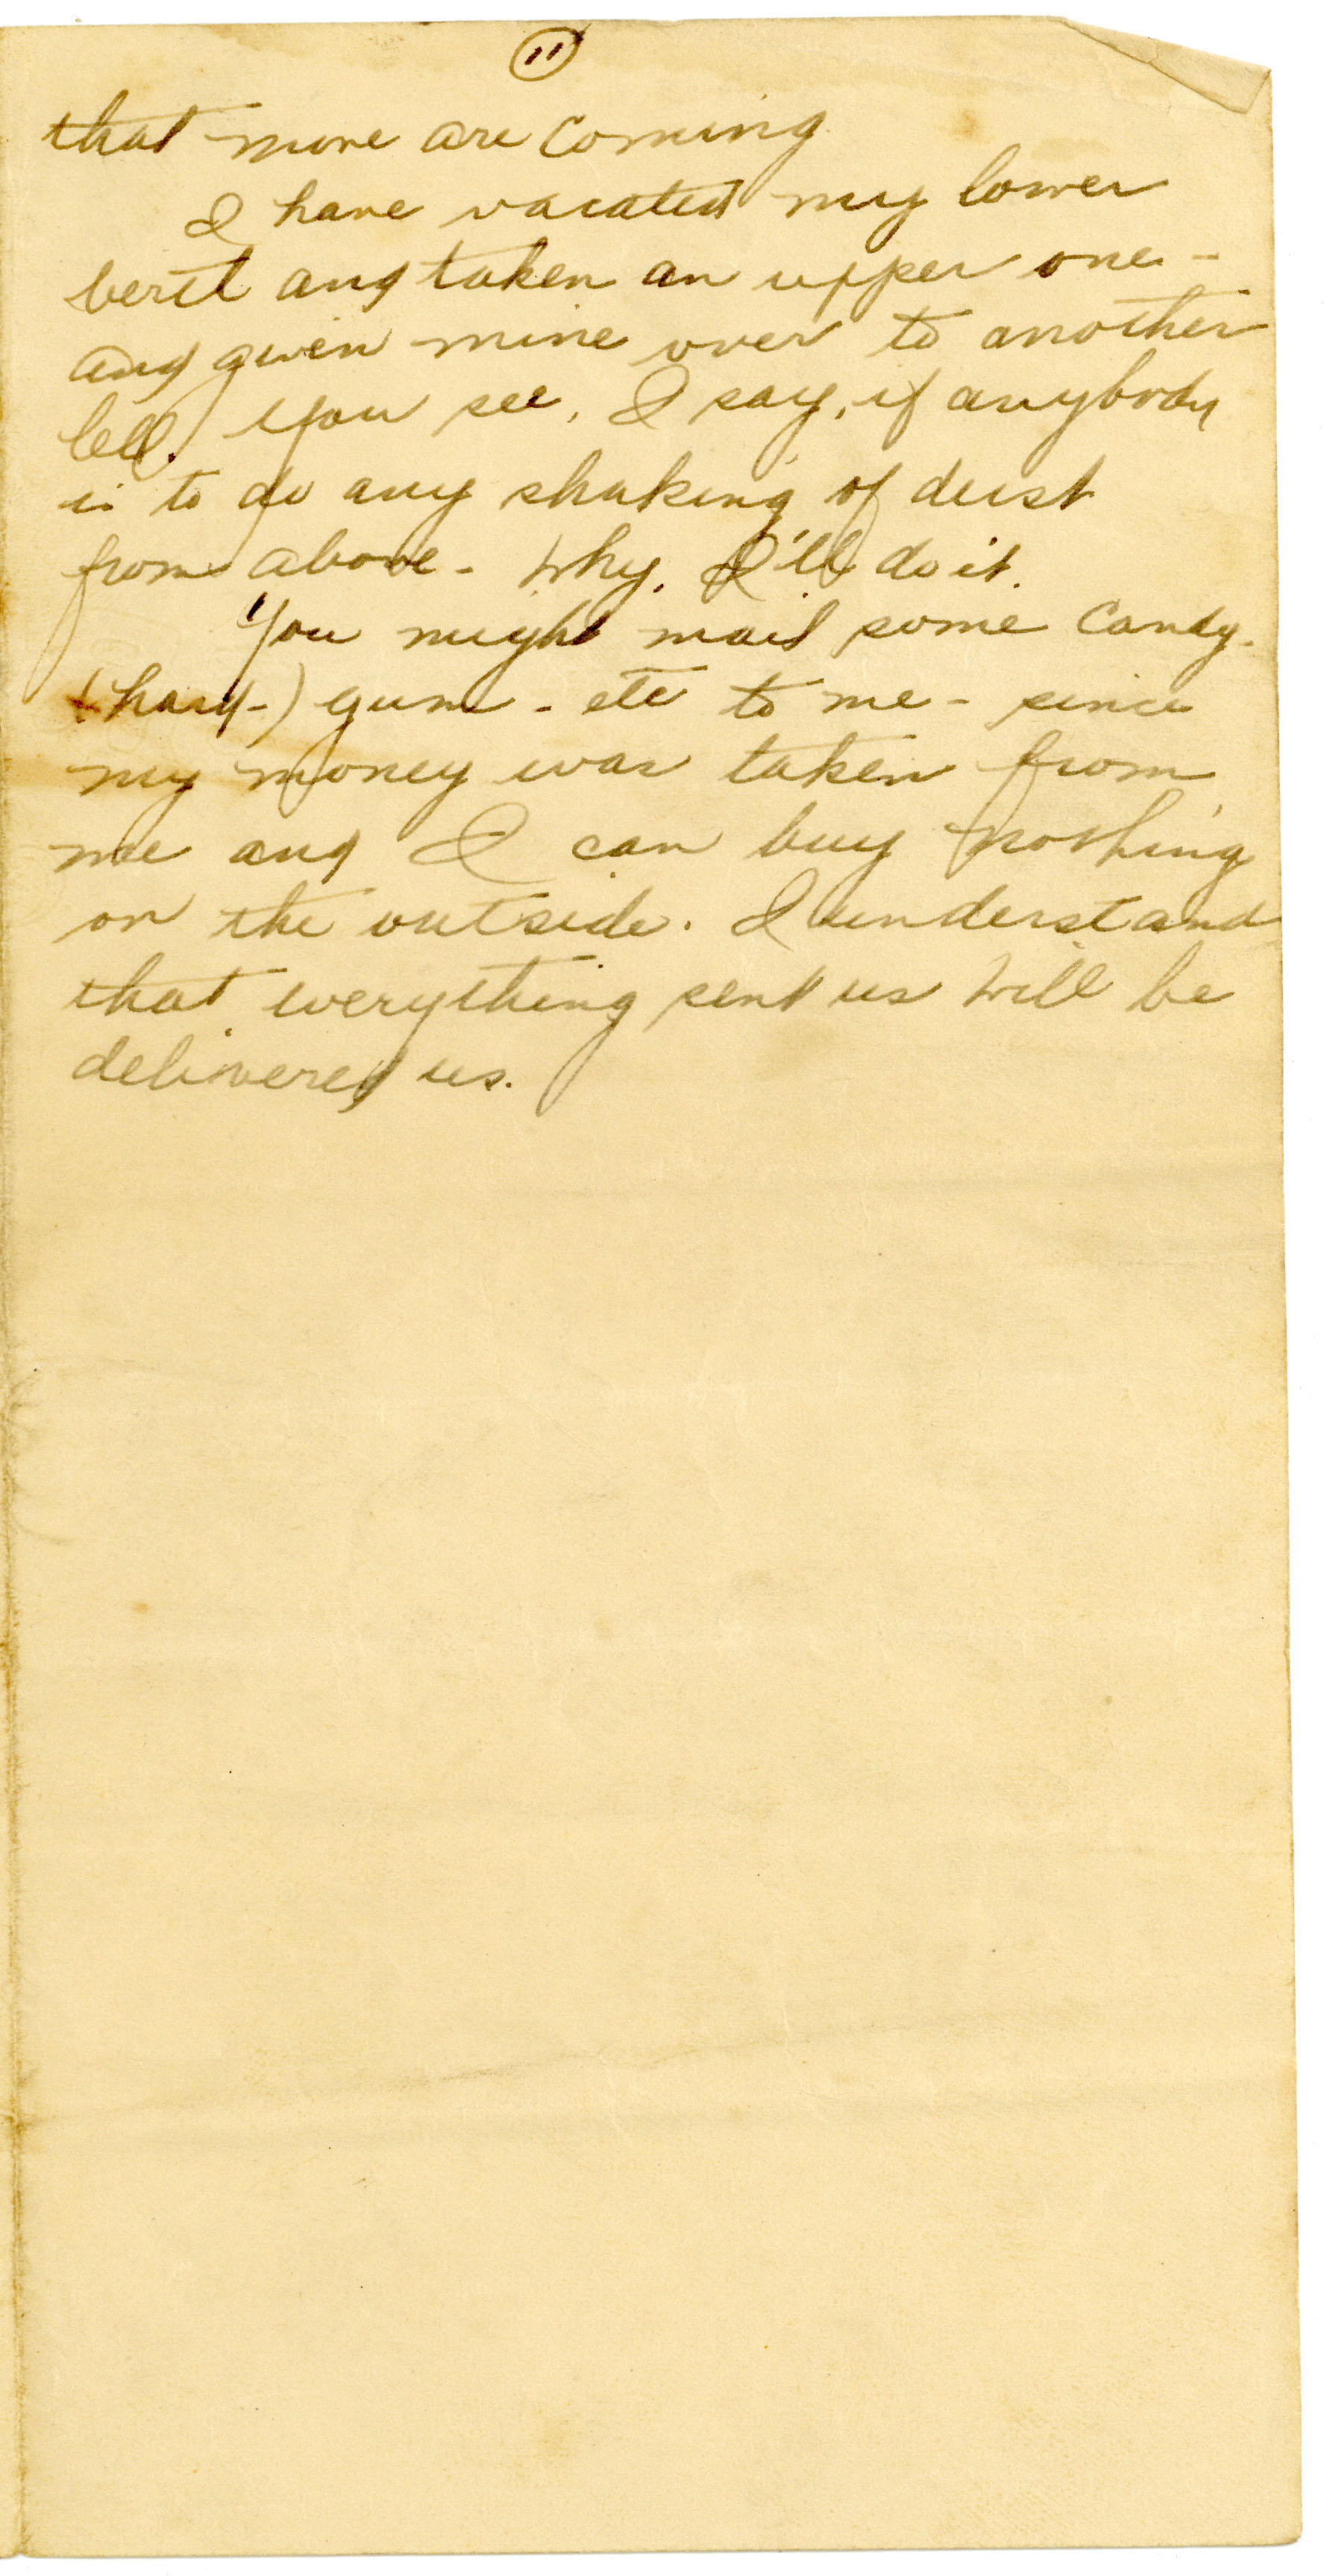 11
that more are coming
I have vacated my lower
berth and taken an upper one -
and given mine over to another
You see, I say, if anybody
is to do any shaking of dust
from above - why, I'll do it.
You might mail some candy -
(hard-) gum - etc to me - since
my money was taken from
me and I can buy nothing
on the outside. I understand
that everything sent us will be
delivered us.